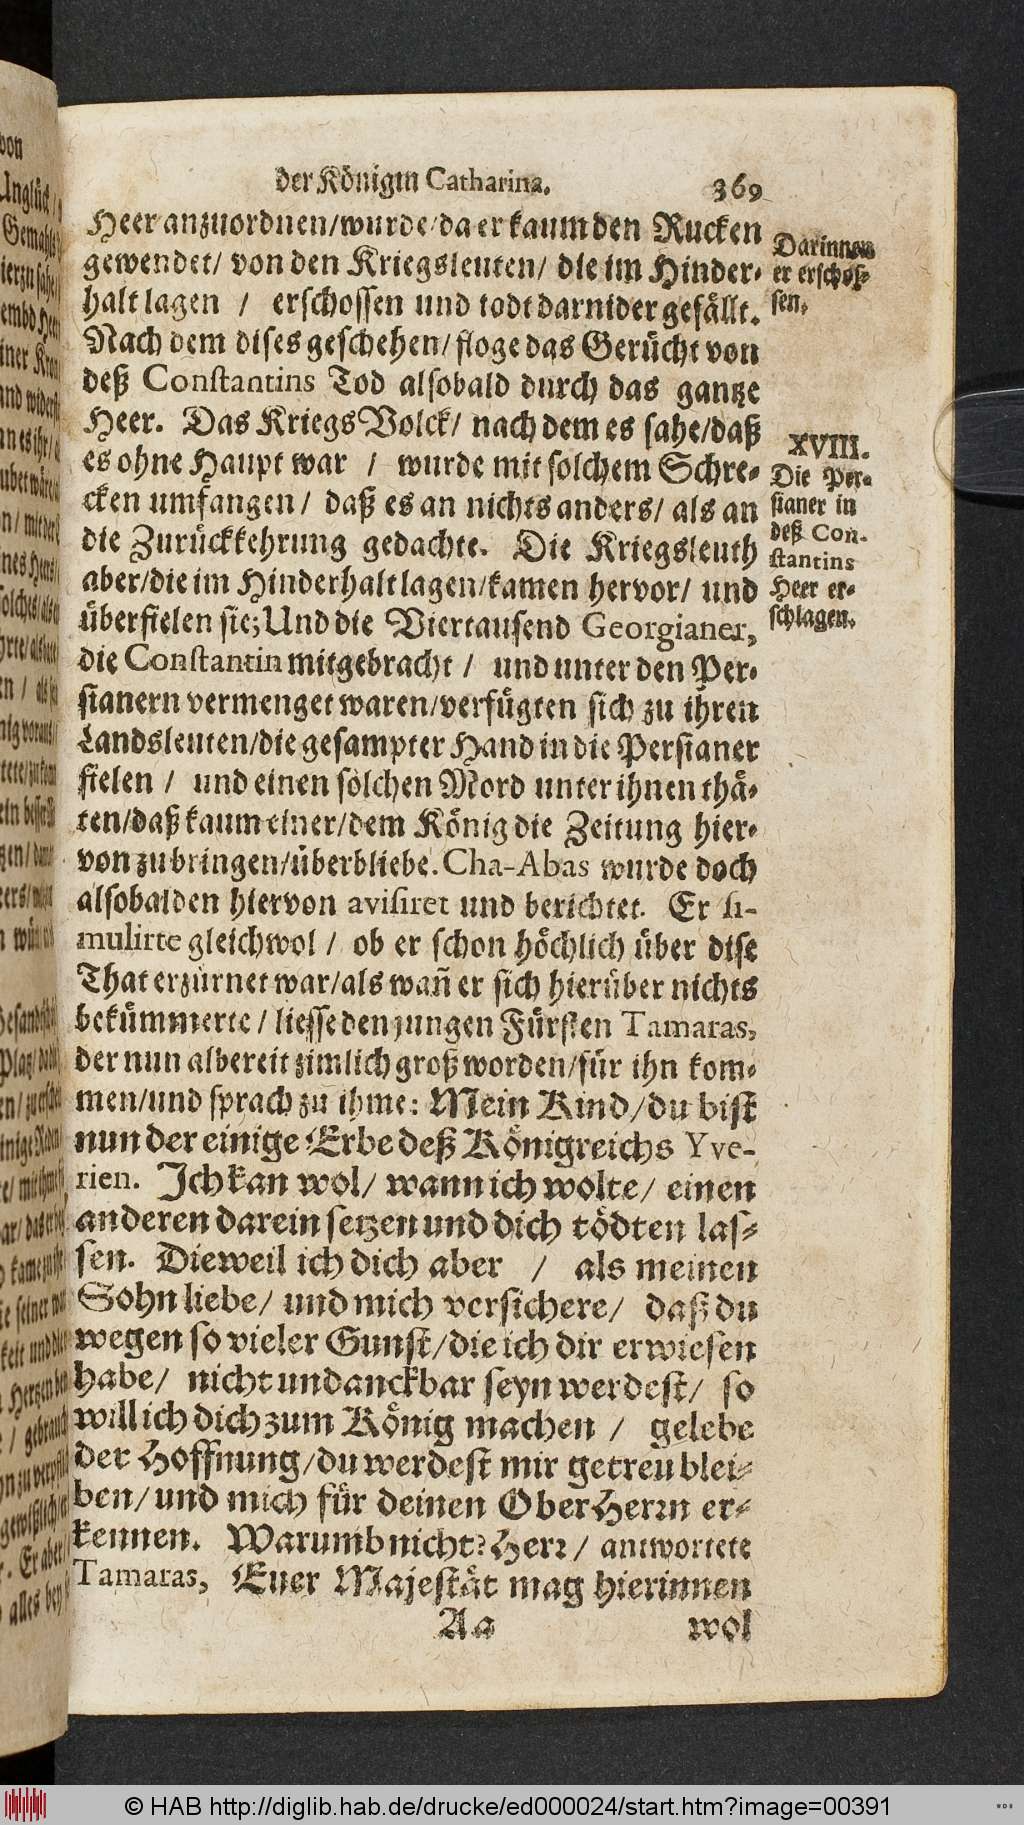 der Königin Catharina. 369
Heer anzuordnen/wurde/da er kaum den Rucken
gewendet/ von den Kriegsleuten/ die im Hinder-
halt lagen / erschossen und todt darnider gefällt.
Nach dem dises geschehen/ floge das Gerücht von
deß Constantins Tod alsobald durch das gantze
Heer. Das Kriegs Volck/ nach dem es sahe/daß
es ohne Haupt war / wurde mit solchem Schre-
cken umfangen/ daß es an nichts anders/ als an
die Zurückkehrung gedachte. Die Kriegsleuth
aber/die im Hinderhalt lagen/kamen hervor/ und
überfielen sie; Und die Viertausend Georgianer,
die Constantin mitgebracht / und unter den Per-
sianern vermenget waren/verfügten sich zu ihren
Landsleuten/die gesampter Hand in die Persianer
fielen / und einen solchen Mord unter ihnen thä-
ten/daß kaum einer/dem König die Zeitung hier-
von zu bringen/überbliebe. Cha-Abas wurde doch
alsobalden hiervon avisiret und berichtet. Er si-
mulirte gleichwol / ob er schon höchlich über dise
That erzürnet war/als wañ er sich hierüber nichts
bekümmerte / liesse den jungen Fürsten Tamaras,
der nun albereit zimlich groß worden/für ihn kom-
men/und sprach zu ihme: Mein Kind/du bist
nun der einige Erbe deß Königreichs Yve-
rien. Ich kan wol/ wann ich wolte/ einen
anderen darein setzen und dich tödten las-
sen. Dieweil ich dich aber / als meinen
Sohn liebe/ und mich versichere/ daß du
wegen so vieler Gunst/die ich dir erwiesen
habe/ nicht undanckbar seyn werdest/ so
will ich dich zum König machen / gelebe
der Hoffnung/du werdest mir getreu blei-
ben/und mich für deinen OberHerrn er-
kennen. Warumb nicht? Herr/ antwortete
Tamaras, Euer Majestät mag hierinnen
Aa wol
Darinnen
er erschos-
sen.
XVIII.
Die Per-
sianer in
deß Con-
stantins
Heer er-
schlagen.
© HAB http://diglib.hab.de/drucke/ed000024/start.htm?image=00391